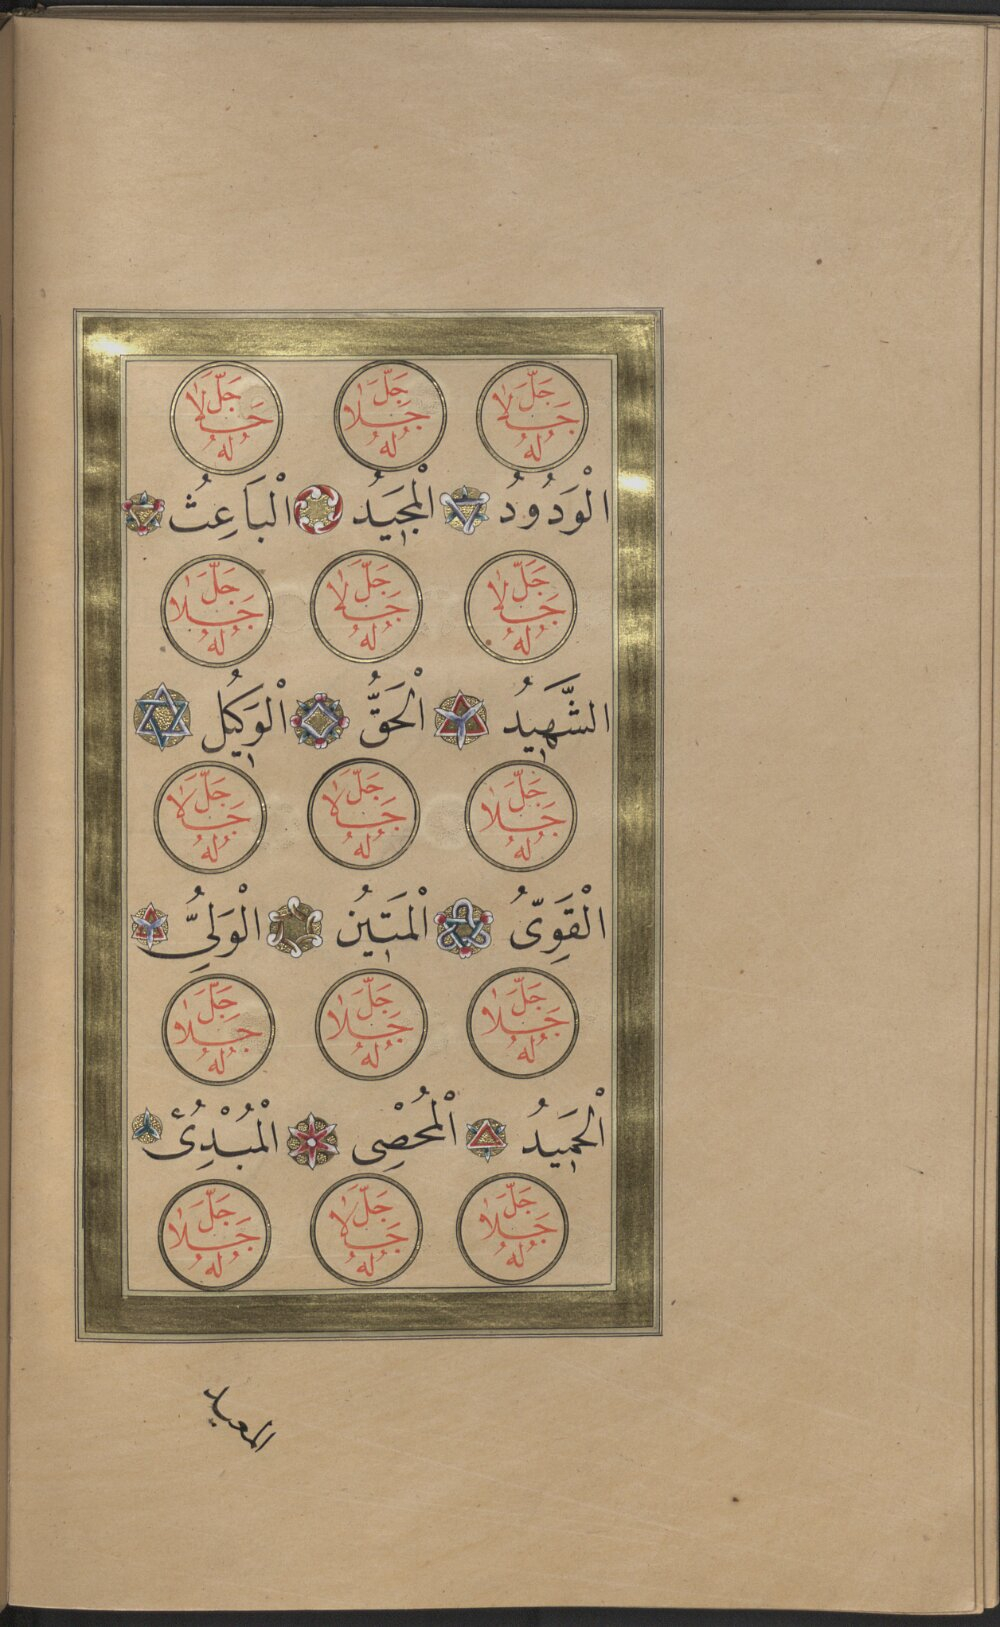 جَلَّ جَلَالُهُ جَلَّ جَلَالُهُ جَلَّ جَلَالُهُ
الْوَدُودُ الْمَجِيدُ الْبَاعِثُ
جَلَّ جَلَالُهُ جَلَّ جَلَالُهُ جَلَّ جَلَالُهُ
الشَّهِيدُ الْحَقُّ الْوَكِيلُ
جَلَّ جَلَالُهُ جَلَّ جَلَالُهُ جَلَّ جَلَالُهُ
الْقَوِىُّ الْمَتِينُ الْوَلِىُّ
جَلَّ جَلَالُهُ جَلَّ جَلَالُهُ جَلَّ جَلَالُهُ
الْحَمِيدُ الْمُحْصِى الْمُبْدِئُ
جَلَّ جَلَالُهُ جَلَّ جَلَالُهُ جَلَّ جَلَالُهُ
المعيد